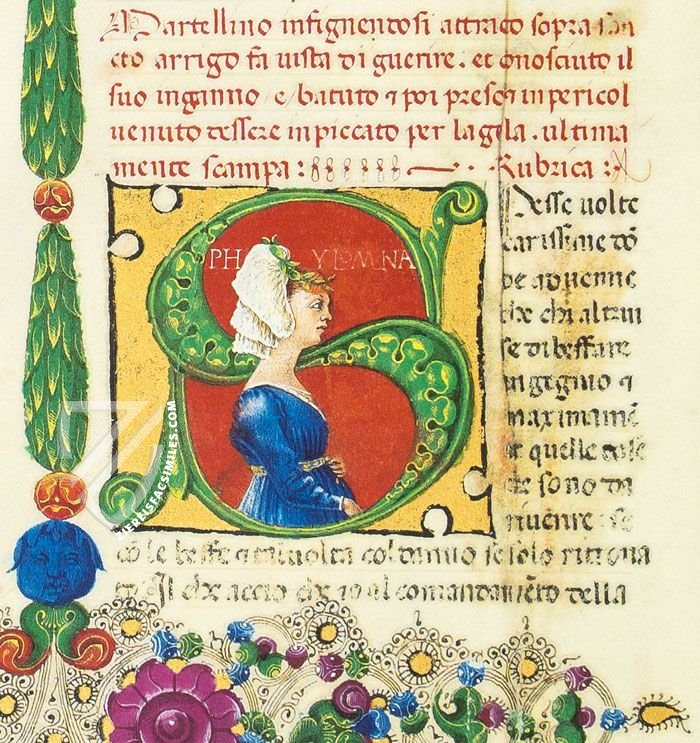 Martellino infignendosi attrato sopra san
cto arrigo fa vista di guerire. et conosciuto il
suo inganno e batuto & poi preso & in pericol
venuto dessere inpiccato per la gola. ultima
mente scampa: Rubrica:
PHYLOMNA
Spesse volte
carissime dō
ne advenne
che chi altrui
se di beffare
ingegnio &
maximamē
quelle cose
che sono da
riverire. se
cō le beffe a tal volta col danno se solo ritrova
to. Il che accio che io al comandamēto della
ZIEREISFACSIMILES.COM